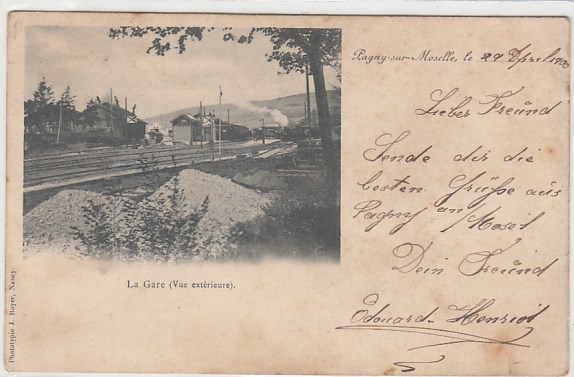 Pagny-sur-Moselle, le 29 April 1900
Lieber Freünd
Sende dir die
besten Grüße aus
Pagny an /Mosel
Dein Freünd
Edouard Henriot
La Gare (Vue extérieure).
Phototypie J. Royer, Nancy